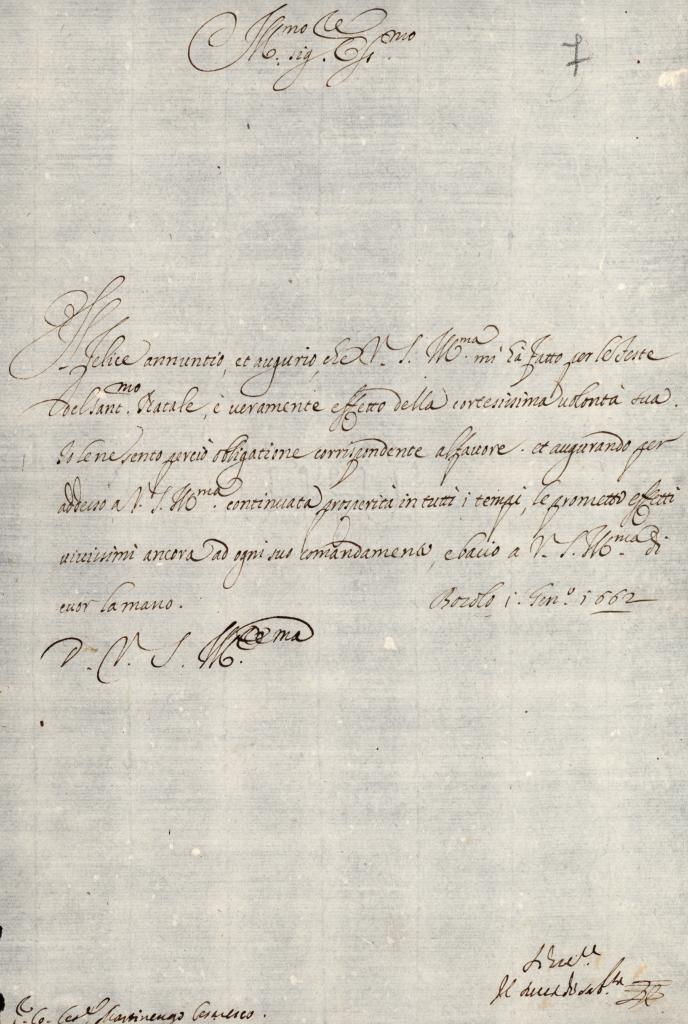 Ill.mo Sig.
7
Il felice annuntio, et augurio, che V. S. Ill.ma mi hà fatto per le feste
del Sant.mo Natale, è veramente effetto della cortesissima volontà sua.
Io le ne sento perciò obligatione corrispondente al favore. et augurando per
adesso a V. S. Ill.ma continuata prosperità in tutti i tempi, le prometto effetti
vivissimi ancora ad ogni suo comandamento, e bacio a V. S. Ill.ma di
cuor la mano. Bozolo 1. Gen.o 1662
D. V. S. Ill.ma
Il duca di Sab.ta
Co. Martinengo Cesaresco.